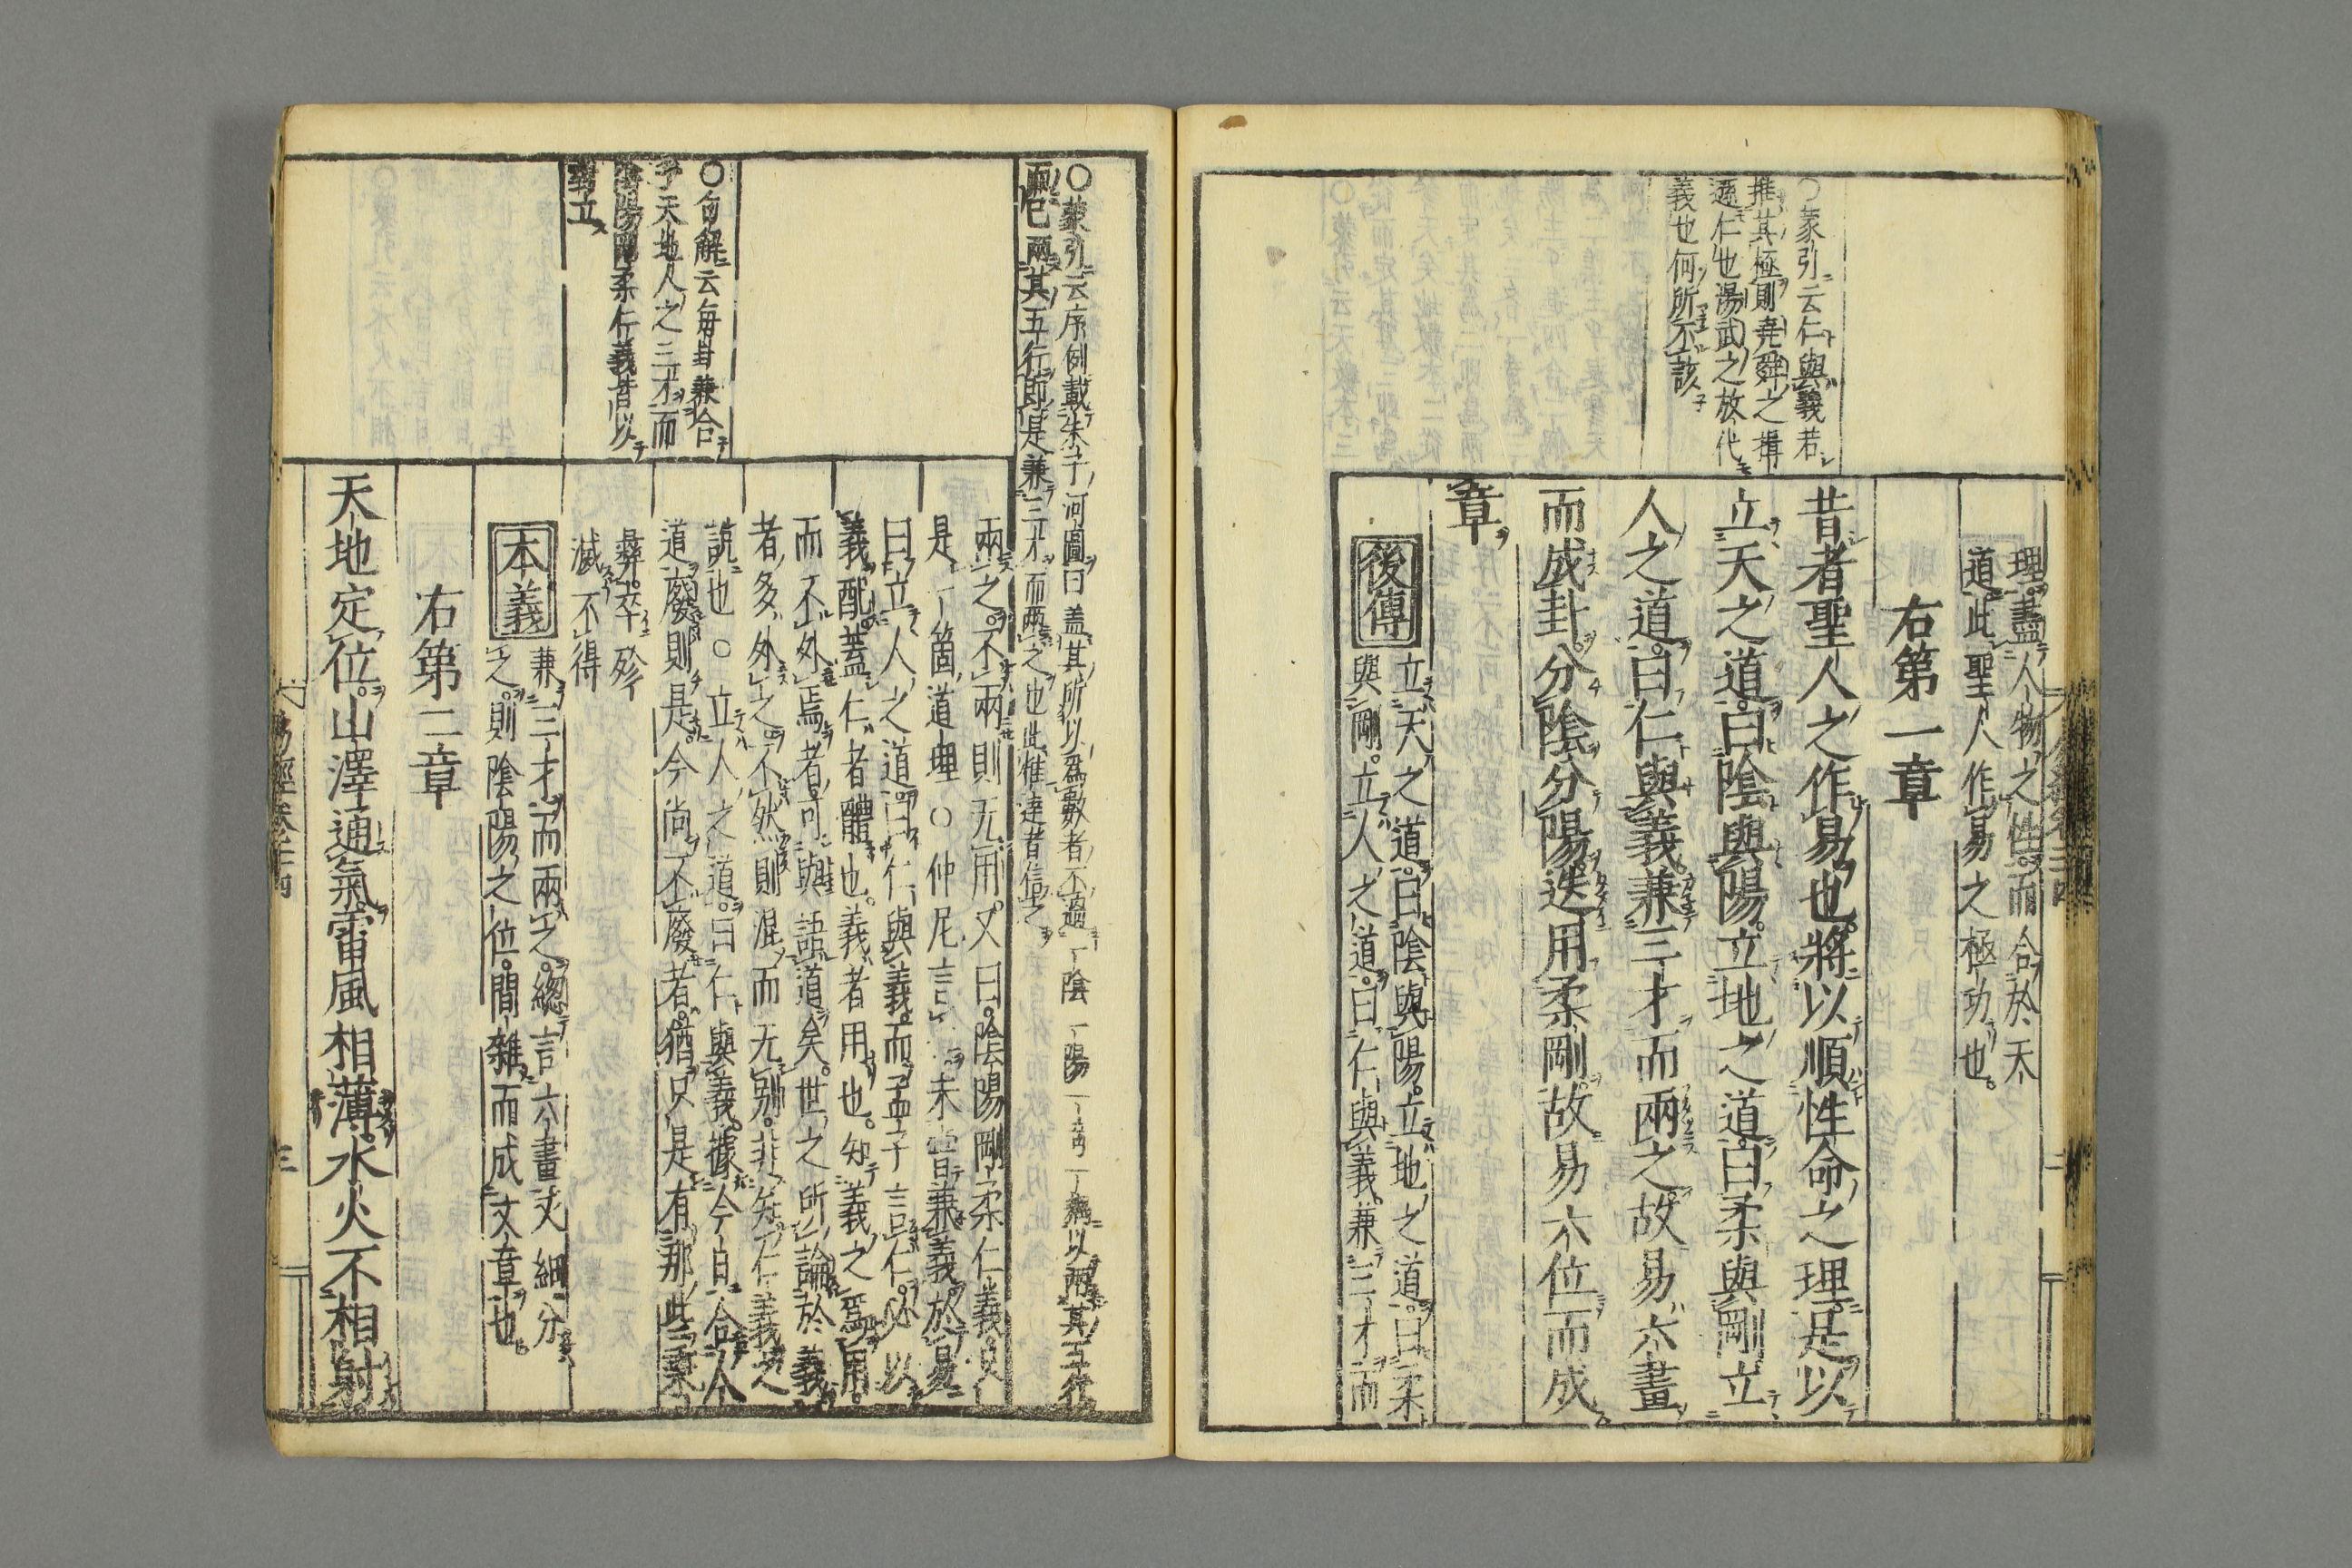 ○蒙引云仁與義若
推其極則堯舜之揖
遜仁也湯武之放伐
義也何所不該
理盡人物之性而合於天
道此聖人作易之極功也
右第一章
昔者聖人之作易也將以順性命之理是以
立天之道曰陰與陽立地之道曰柔與剛立
人之道曰仁與義兼三才而兩之故易六畫
而成卦分陰分陽迭用柔剛故易六位而成
章
後傳
立天之道曰陰與陽立地之道曰柔
與剛立人之道曰仁與義兼三才而
○蒙引云序例載朱子河圖曰蓋其所以為數者不過一陰一陽一奇一耦以兩其五行
而已兩其五行即是兼三才而兩之也此惟達者信之
○句解云每卦兼合
乎天地人之三才而
陰陽剛柔仁義皆以
對立
兩之不兩則无用又曰陰陽剛柔仁義只
是一箇道理○仲尼言仁未嘗兼義於易
曰立人之道曰仁與義而孟子言仁必以
義配蓋仁者體也義者用也知義之為用
而不外焉者可與語道矣世之所論於義
者多外之不然則混而无別非知仁義之
說也○立人之道曰仁與義據今日合人
道廢則是今尚不廢者猶只是有那些秉
彝卒殄
滅不得
本義
兼三才而兩之總言六畫又細分
之則陰陽之位間雜而成文章也
右第二章
天地定位山澤通氣雷風相薄水火不相射
易經卷之二十四
三